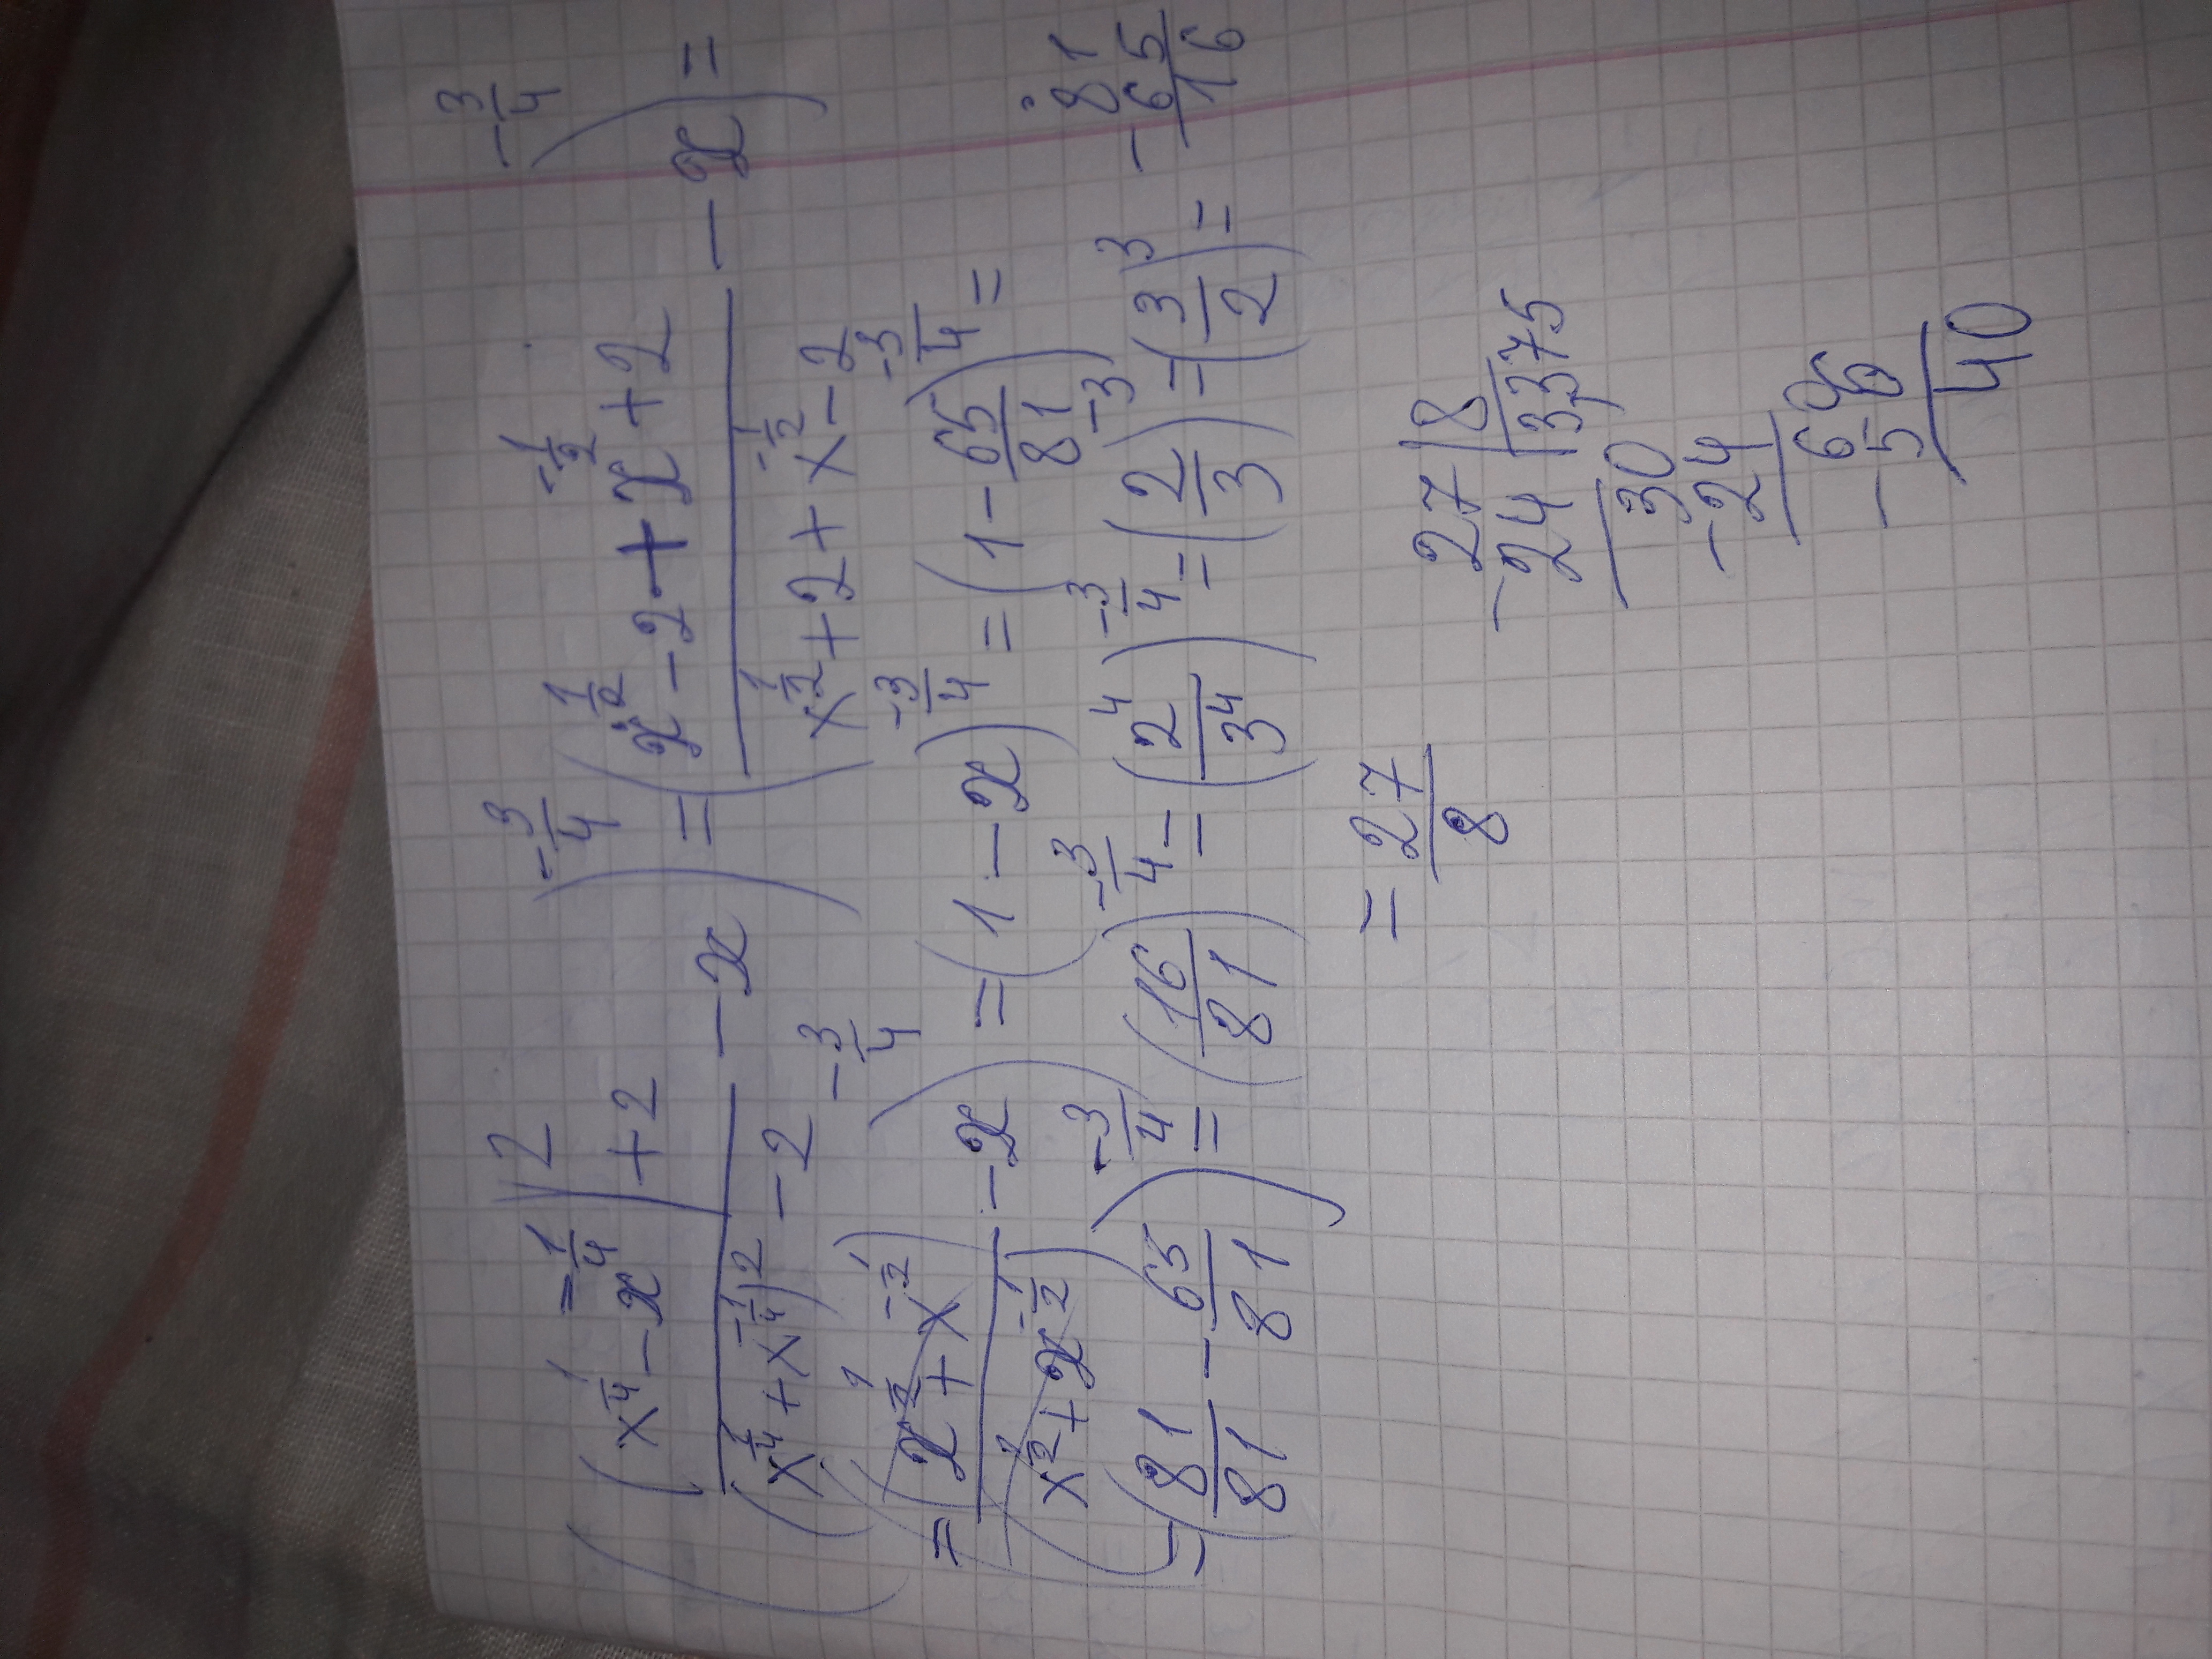 ((x^{1/4} - x^{-1/4})^2 + 2 / (x^{1/4} + x^{-1/4})^2 - 2 - x)^{-3/4} = (x^{1/2} - 2 + x^{-1/2} + 2 / x^{1/2} + 2 + x^{-1/2} - 2 - x)^{-3/4} =
= ((x^{1/2} + x^{-1/2}) / (x^{1/2} + x^{-1/2}) - x)^{-3/4} = (1 - x)^{-3/4} = (1 - 65/81)^{-3/4} =
= (81/81 - 65/81)^{-3/4} = (16/81)^{-3/4} = (2^4/3^4)^{-3/4} = (2/3)^{-3} = (3/2)^3 =
= 27/8
81
- 65
16
27 | 8
- 24 | 3,375
30
- 24
60
- 56
40